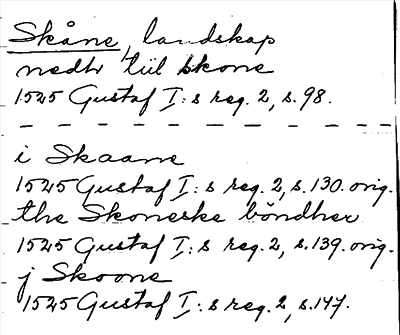 Skåne, landskap
nedtr till skone
1525 Gustaf I:s reg. 2, s. 98.
i Skaane
1525 Gustaf I:s reg. 2, s. 130. orig.
the Skoneske böndher
1525 Gustaf I:s reg. 2, s. 139. orig.
j Skoone
1525 Gustaf I:s reg. 2, s. 147.